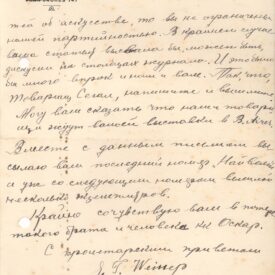 той об искусстве, то вы не ограничены
нашей партийностью. В крайнем случае
ваша статья вызвала бы, может быть,
дискуссии на столбцах журнала. И это было
бы много лучше и нам и вам. Так, что
товарищ Сенин, напишите и вышлите.
Могу вам сказать что наши товари-
щи ждут вашей выставки в
Вместе с данным письмом вы-
сылаю вам последний номер.
а уж со следующим номером вышлю
несколько экземпляров.
Крайне сочувствую вам в потере
такого брата и человека как Оскар.
С пролетарским приветом